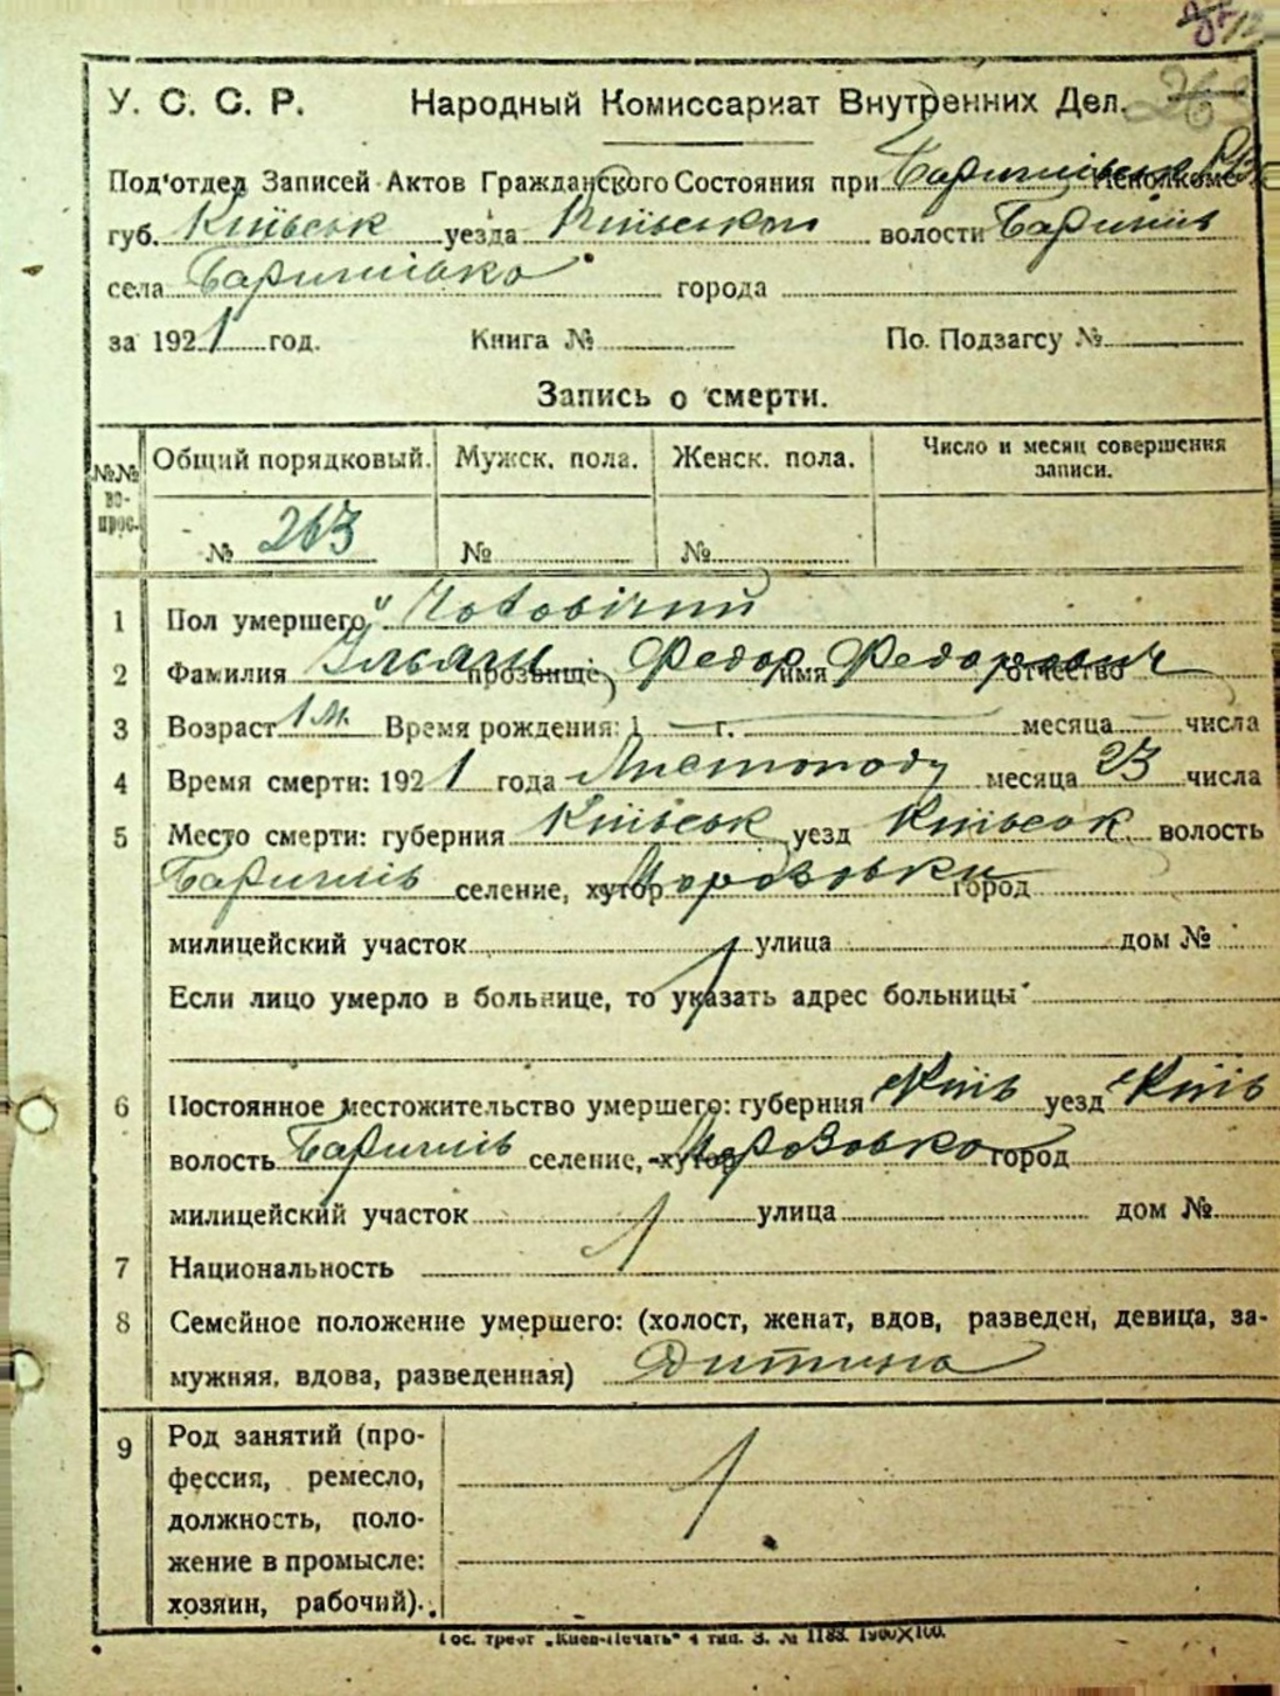 263
У. С. С. Р. Народный Комиссариат Внутренних Дел.
Под'отдел Записей Актов Гражданского Состояния при Исполкоме
губ. Київськ уезда Київського волости Баришів
села Баришівка города
за 1921 год. Книга № По. Подзагсу №
Запись о смерти.
№№ вопрос. Общий порядковый. Мужск. пола. Женск. пола. Число и месяц совершения записи.
№ 263 № №
1 Пол умершего Чоловічий
2 Фамилия прозвище, Федор имя Федорович отчество
3 Возраст 1 м. Время рождения: 1 — г. — месяца — числа
4 Время смерти: 1921 года Листопаду месяца 23 числа
5 Место смерти: губерния Київськ уезд Київськ волость
Баришів селение, хутор Морозовки город
милицейский участок улица дом №
Если лицо умерло в больнице, то указать адрес больницы
6 Постоянное местожительство умершего: губерния Київ уезд Київ
волость Баришів селение, хутор Морозовка город
милицейский участок улица дом №
7 Национальность
8 Семейное положение умершего: (холост, женат, вдов, разведен, девица, за-
мужняя, вдова, разведенная) Дитина
9 Род занятий (про-
фессия, ремесло,
должность, поло-
жение в промысле:
хозяин, рабочий).
Гос. трест „Киев-Печать" 4 тип. З. № 1183. 1900×100.